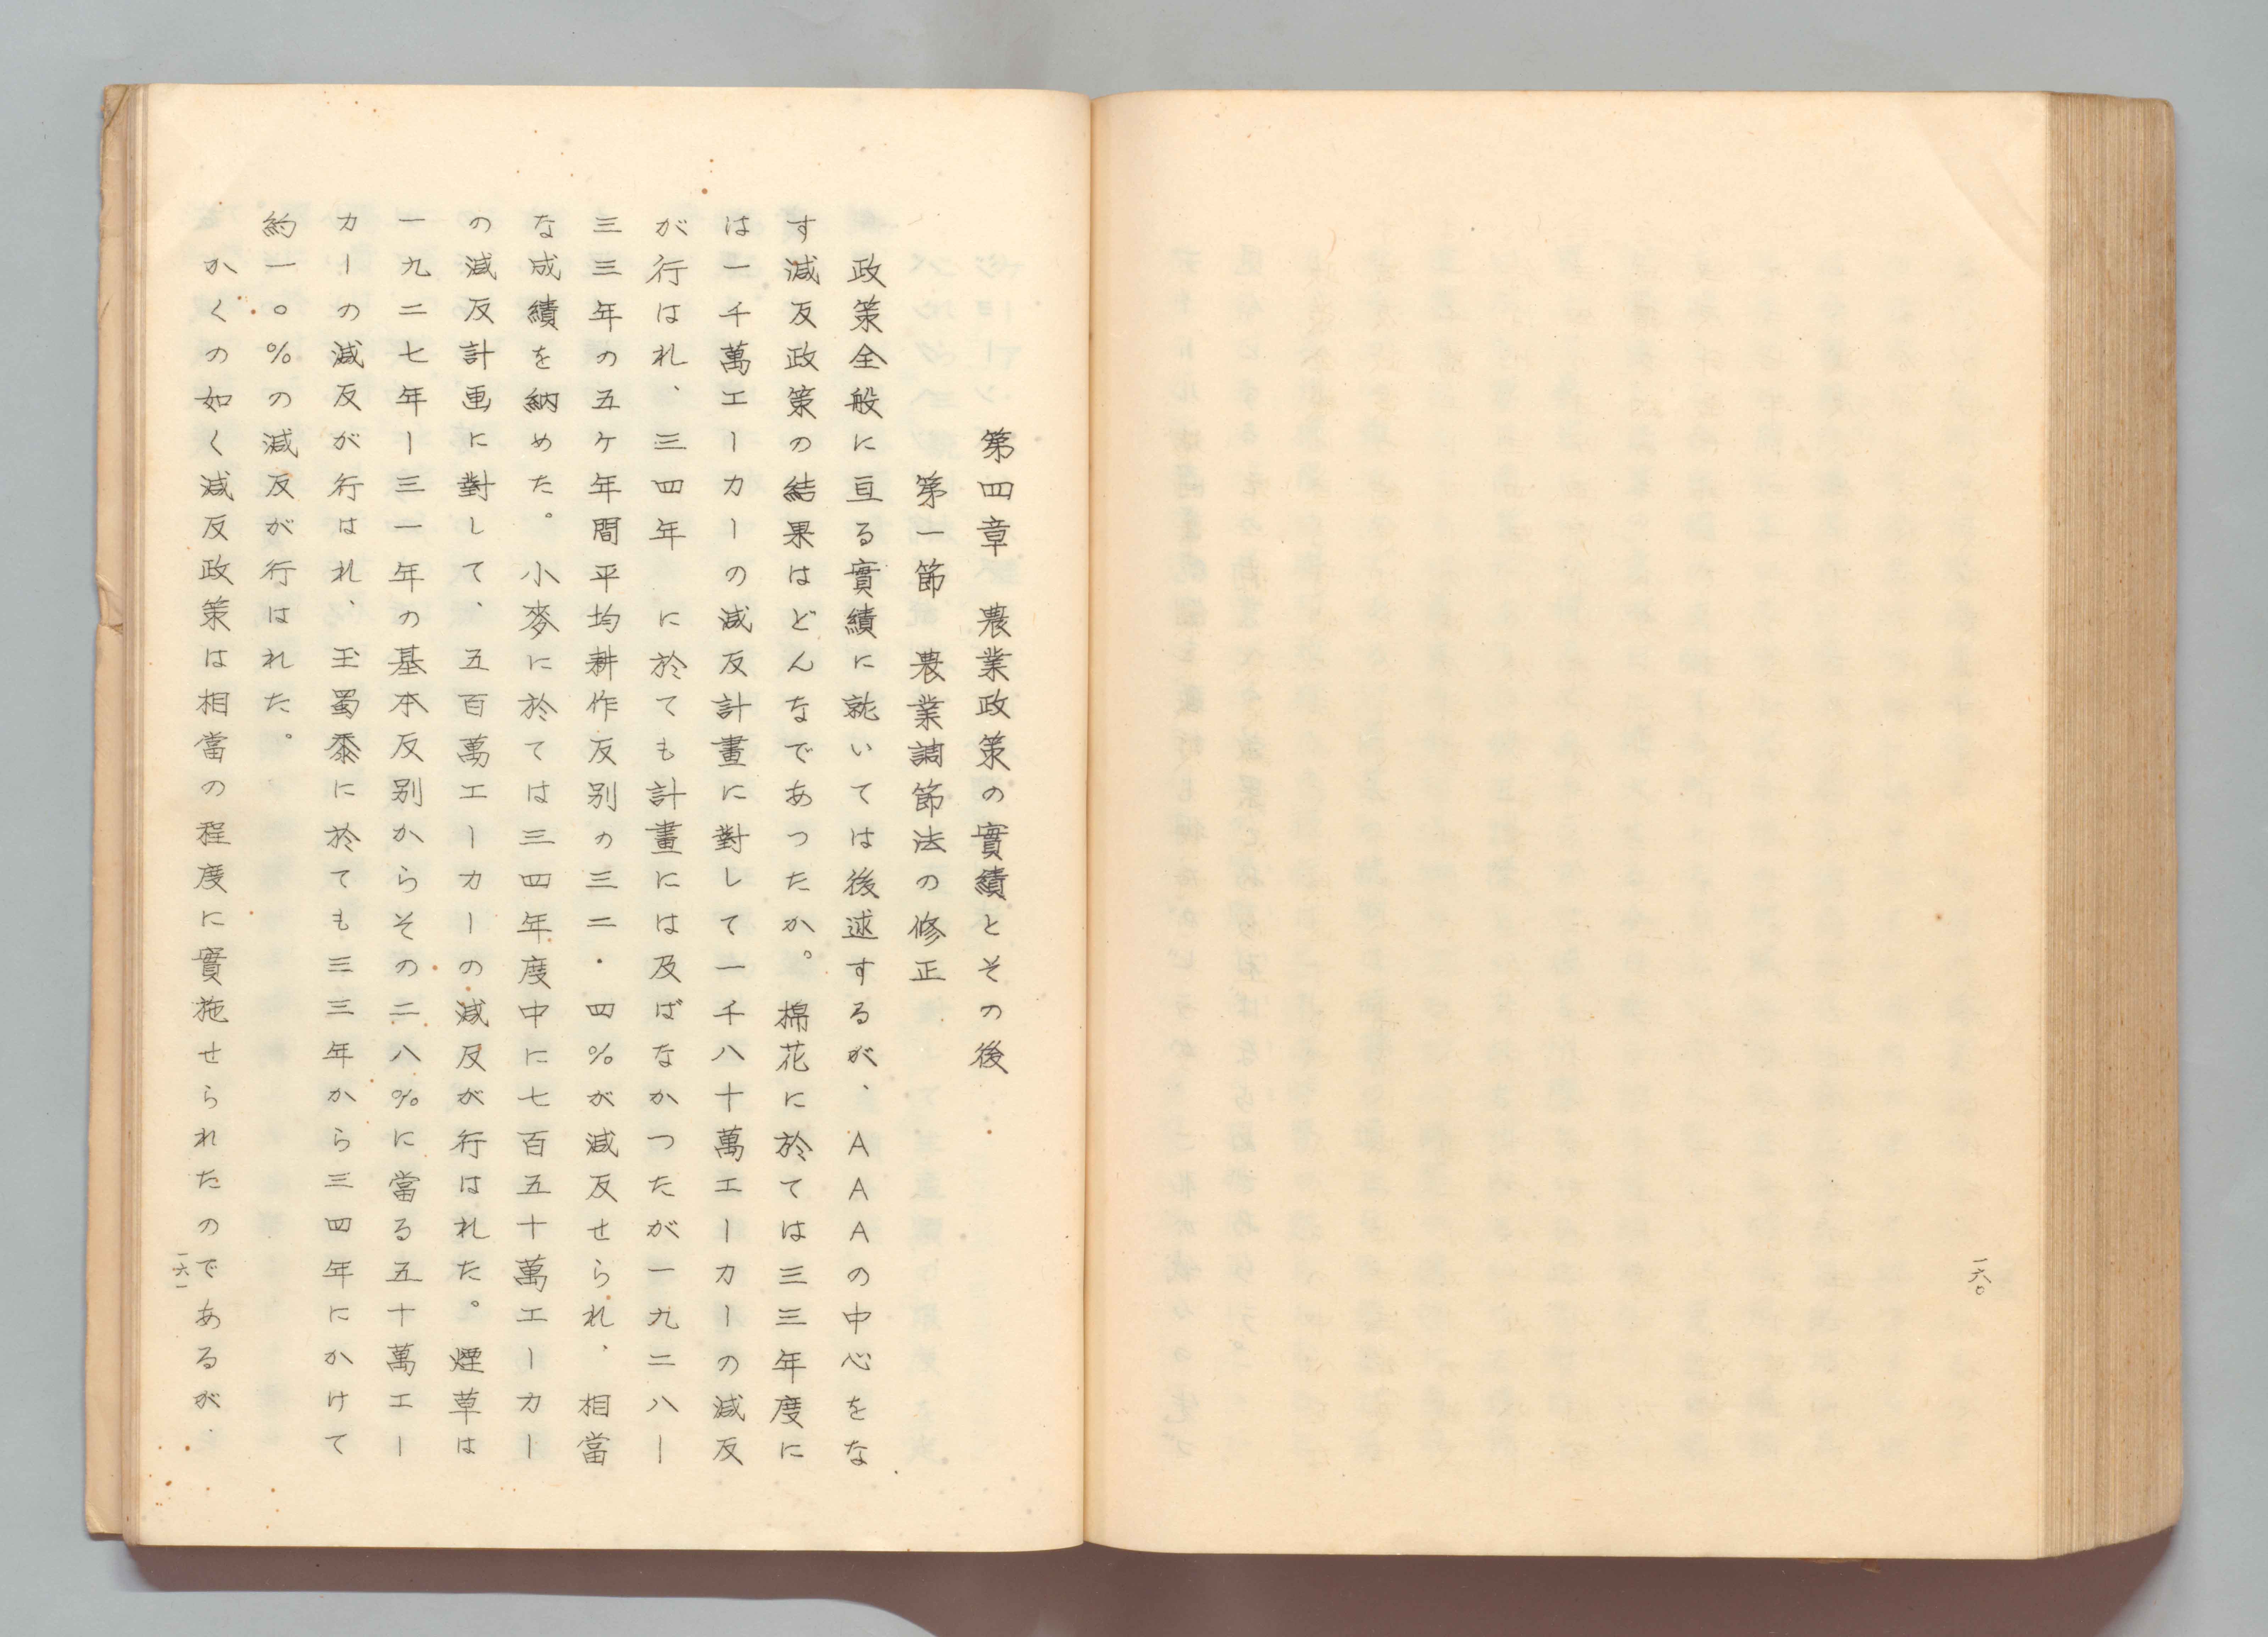 一六〇
第四章　農業政策の實績とその後
第一節　農業調節法の修正
政策全般に亘る實績に就いては後述するが、AAAの中心をな
す減反政策の結果はどんなであつたか。棉花に於ては三三年度に
は一千萬エーカーの減反計畫に對して一千八十萬エーカーの減反
が行はれ、三四年　に於ても計畫には及ばなかつたが一九二八ー
三三年の五ケ年間平均耕作反別の三二・四%が減反せられ、相當
な成績を納めた。小麥に於ては三四年度中に七百五十萬エーカー
の減反計画に對して、五百萬エーカーの減反が行はれた。煙草は
一九二七年ー三一年の基本反別からその二八%に當る五十萬エー
カーの減反が行はれ、玉蜀黍に於ても三三年から三四年にかけて
約一〇%の減反が行はれた。
かくの如く減反政策は相當の程度に實施せられたのであるが、
一六一